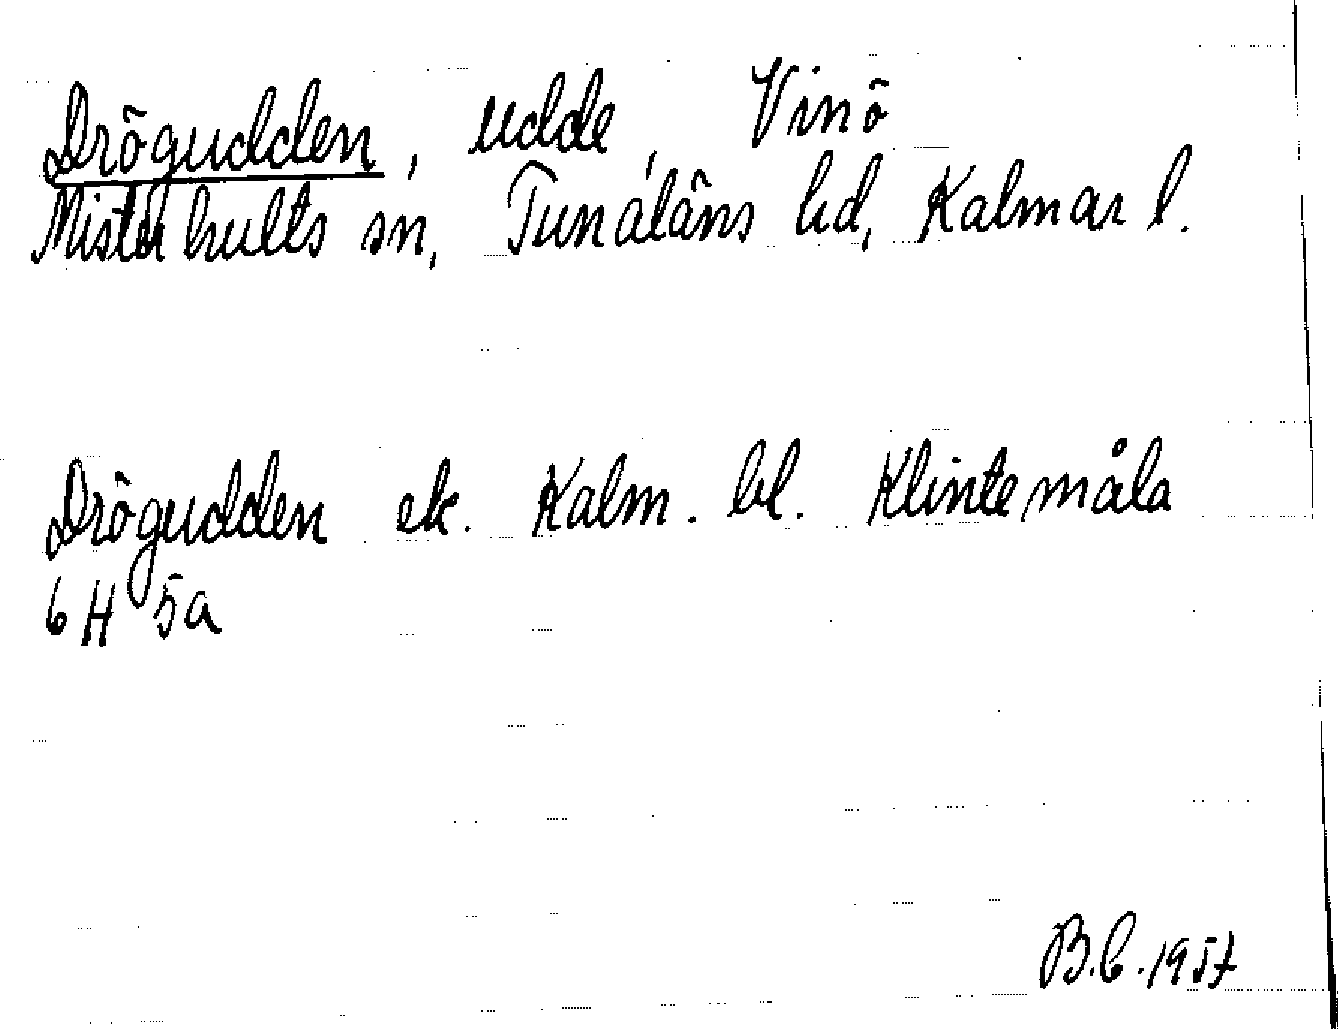 Drögudden, udde, Vinö
Misterhults sn, Tunaläns hd, Kalmar l.
Drögudden ek. Kalm. bl. Klintemåla
6 H 5a
B.C. 1957